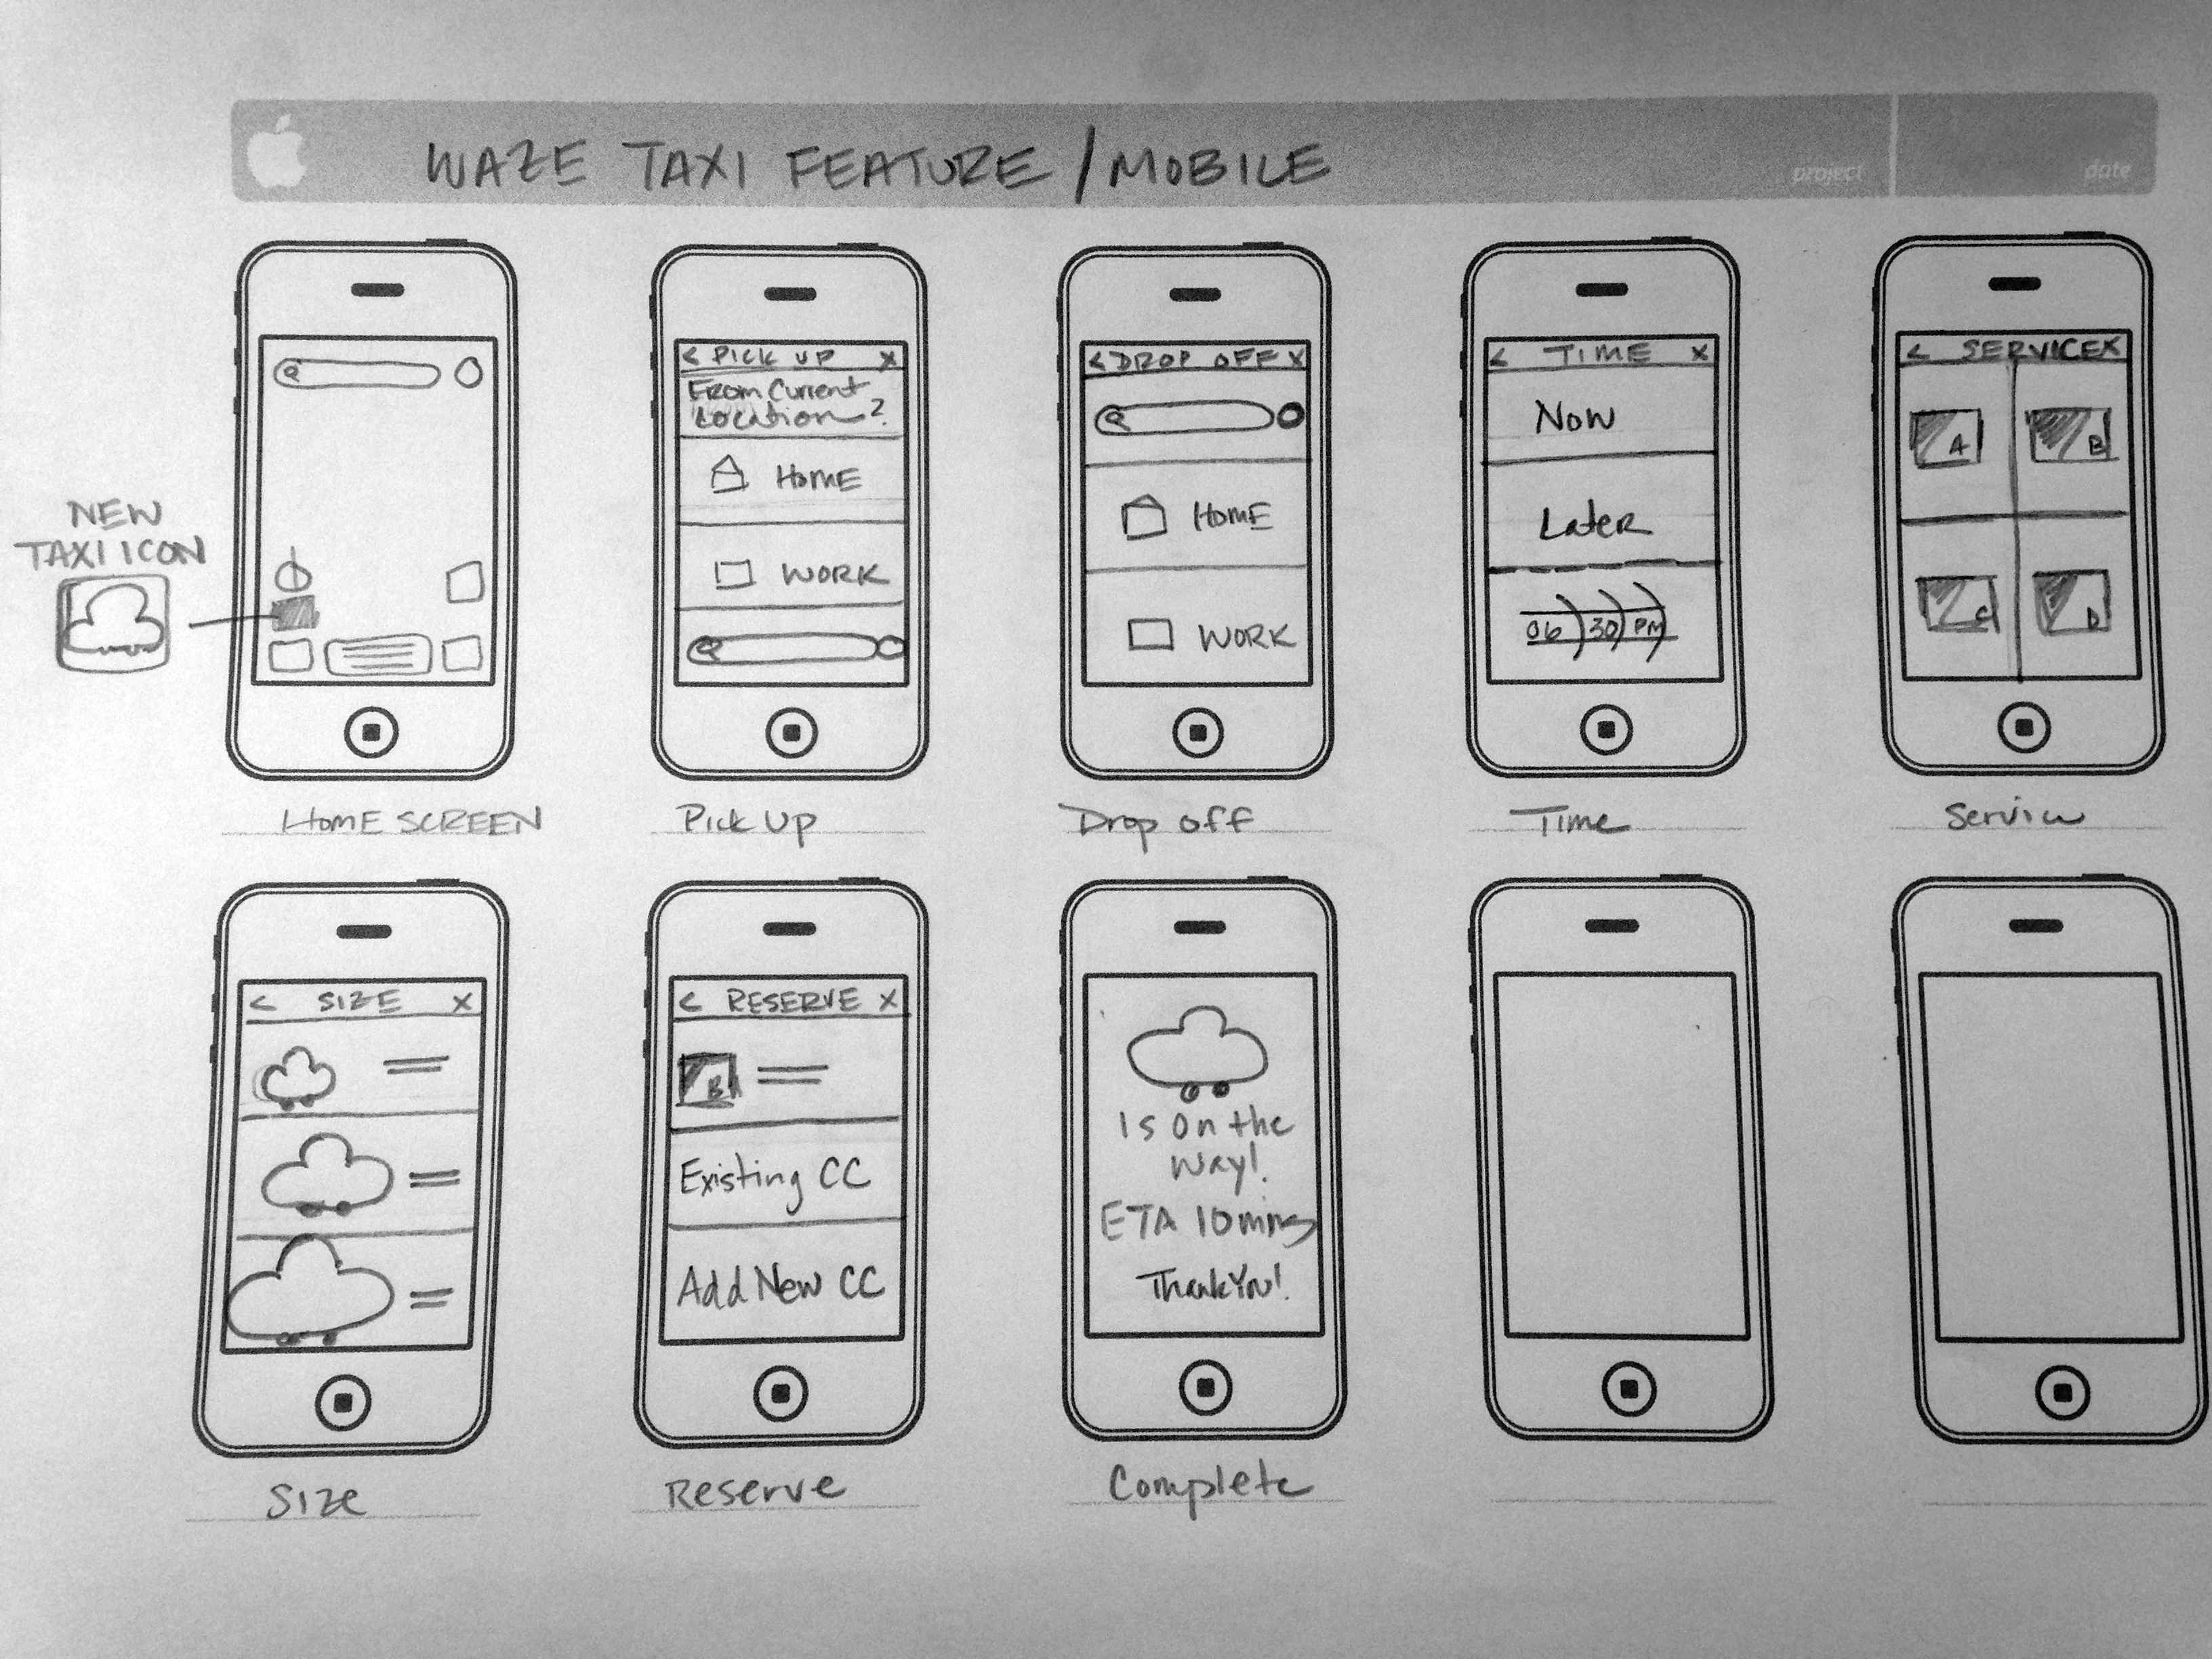 WAZE TAXI FEATURE / MOBILE
project
date
NEW
TAXI ICON
HOME SCREEN
< PICK UP X
From Current
Location?
HOME
WORK
Pick Up
< DROP OFF X
HOME
WORK
Drop off
< TIME X
Now
Later
06 30 PM
Time
< SERVICE X
A
B
C
D
Service
< SIZE X
Size
< RESERVE X
B
Existing CC
Add New CC
Reserve
Is On the
Way!
ETA 10 mins
Thank You!
Complete